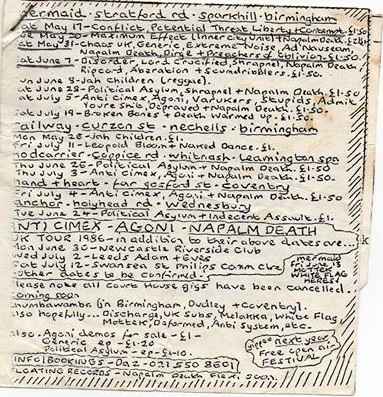 mermaid - stratford rd - sparkhill - birmingham
May 17 - Conflict, Potential Threat, Liberty + Contempt. £1.50
Maximum Effect (Inner City Unit) + Napalm Death
Sat May 31 - Chaos UK, Generic, Extreme Noise, Ad'Nauseam,
Napalm Death, Dirge + Preachers of Oblivion. £1.50
Sat June 7 - Disorder, Lord Crucified, Shrapnel, Napalm Death
Ripcord, Aberation + Scumdribblers. £1.50.
Sun June 8 - Jah Children (reggae).
Sat June 28 - Political Asylum, Shrapnel + Napalm Death. £1.50
Sat July 5 - Anti Cimex, Agoni, Varukers, Stupids, Admit
Youre Shit, Depraved + Napalm Death. £1.50
Sat July 19 - Broken Bones + Death Warmed up. £1.50.
railway - curzon st - nechells - birmingham
May 28 - Jah Children. £1.
Fri July 11 - Leopold Bloom + Naked Dance. £1.
hodcarrier - Coppice rd - whitnash - leamington spa
Thu June 26 - Political Asylum + Napalm Death. £1.50
Thu July 3 - Anti Cimex, Agoni + Napalm Death. £1.50
hand + heart - far gosford st - coventry
Fri July 4 - Anti Cimex, Agoni + Napalm Death. £1.50
anchor - holyhead rd - Wednesbury
Tue June 24 - Political Asylum + Indecent Assault. £1.
ANTI CIMEX - AGONI - NAPALM DEATH
UK TOUR 1986 - in addition to their above dates are...
Mon June 30 - Newcastle Riverside Club
Wed July 2 - Leeds Adam + Eves
Sat July 12 - Swansea St Philips Comm Ctre
other dates to be confirmed
mermaid
MOTTEK
WHITE FLAG
HERESY
Please note all Court House gigs have been cancelled...
coming soon
Chumbawamba (in Birmingham, Dudley + Coventry).
also hopefully... Discharge, UK Subs, Malakka, White Flag
Mottek, Deformed, Anti System, etc.
also. Agoni demos for sale - £1
Generic ep - £1.20
Political Asylum - ep - £1.10.
next year
Free open air
FESTIVAL
INFO/BOOKINGS - Daz - 021 550 8601
FLOATING RECORDS - Napalm Death Flexi soon